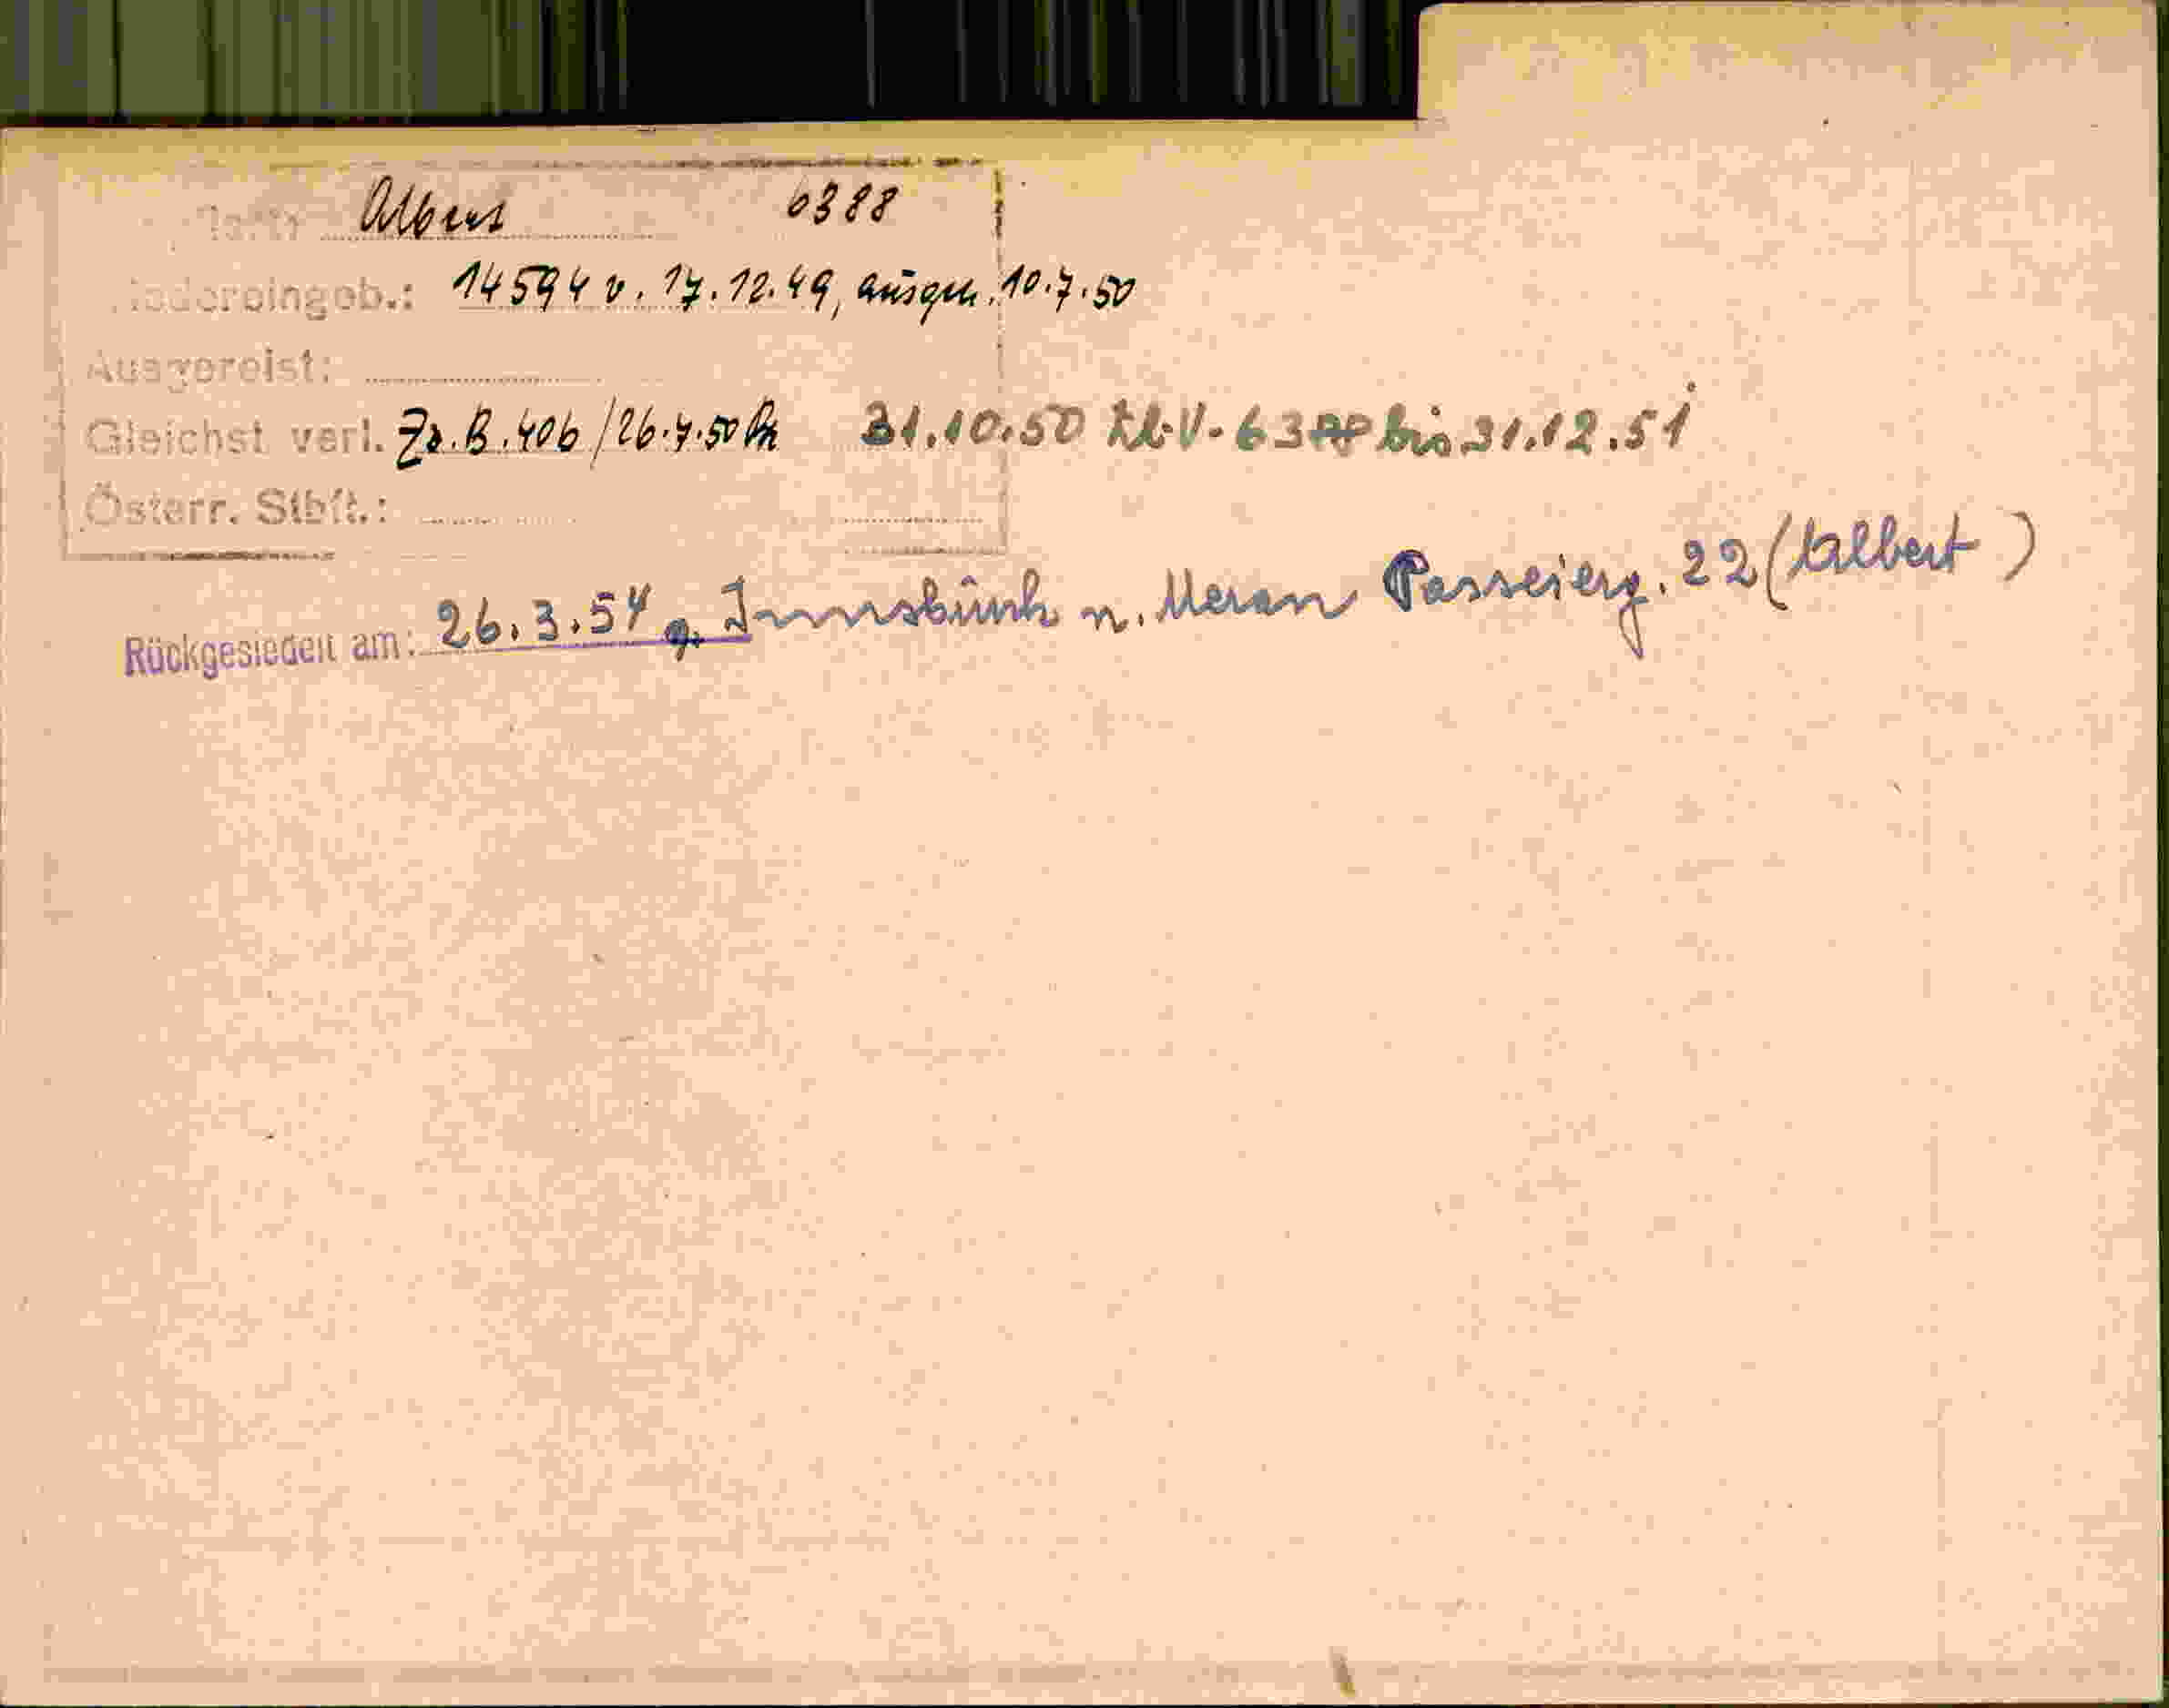 Albert 6388
Wiedereingeb.: 14594 v. 17.12.49, ausgeh. 10.7.50
Ausgereist:
Gleichst verl. Zr.B.406/26.7.50 31.10.50 bis 31.12.51
Österr. Stbft.:
Rückgesiedelt am: 26.3.54 g. Innsbruck n. Meran Passeierg. 22 (Albert)